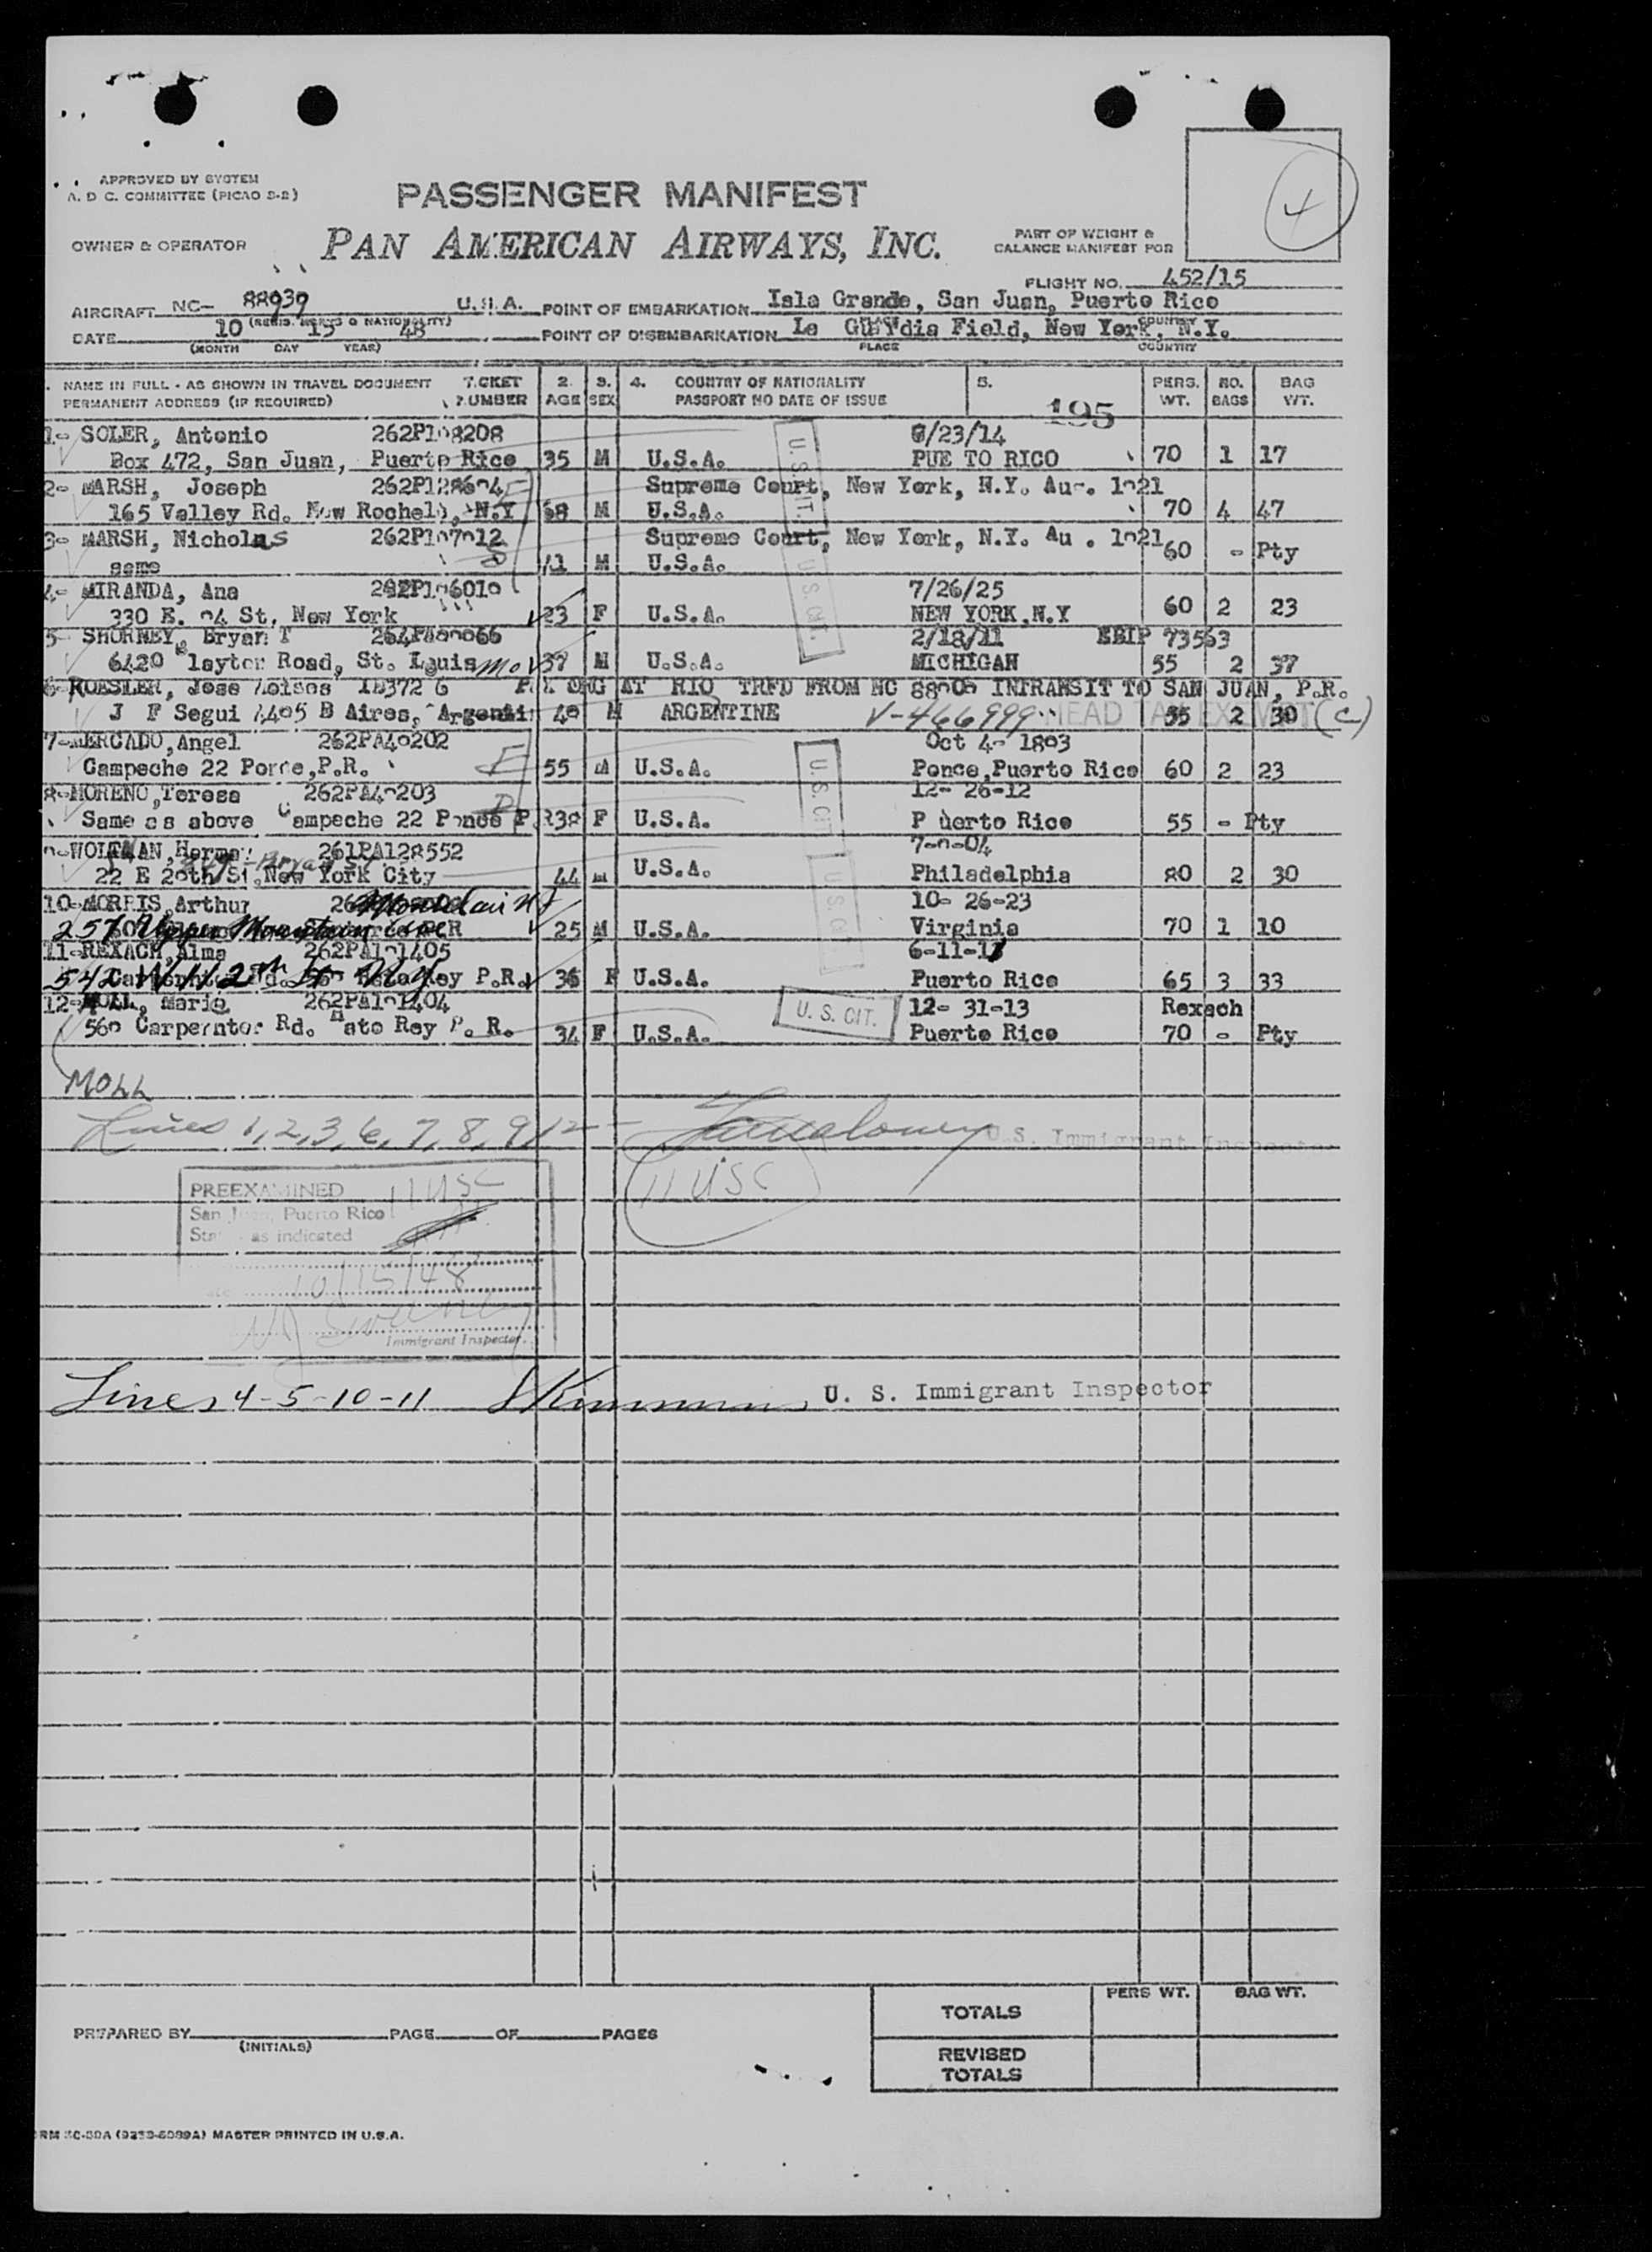 APPROVED BY SYSTEM
A. D C. COMMITTEE (PICAO 2-2)
PASSENGER MANIFEST
4
OWNER & OPERATOR
PAN AMERICAN AIRWAYS, INC.
PART OF WEIGHT &
BALANCE MANIFEST FOR
FLIGHT NO. 452/15
AIRCRAFT NC- 88939 U.S.A. POINT OF EMBARKATION Isla Grande, San Juan, Puerto Rico
DATE 10 15 48 POINT OF DISEMBARKATION La Guardia Field, New York, N.Y.
(MONTH DAY YEAR) PLACE COUNTRY
NAME IN FULL - AS SHOWN IN TRAVEL DOCUMENT TICKET 2. 3. 4. COUNTRY OF NATIONALITY 5. PERS. NO. BAG
PERMANENT ADDRESS (IF REQUIRED) NUMBER AGE SEX PASSPORT NO DATE OF ISSUE WT. BAGS WT.
195
1- SOLER, Antonio /23/14
Box 472, San Juan, Puerto Rico 35 M U.S.A. PUE TO RICO 70 1 17
2- MARSH, Joseph Supreme Court, New York, N.Y.
165 Valley Rd. New Rochel, N.Y M U.S.A. 70 4 47
3- MARSH, Nicholas Supreme Court, New York, N.Y.
same M U.S.A. 60 - Pty
4- MIRANDA, Ana 7/26/25
330 E. St. New York 23 F U.S.A. NEW YORK, N.Y 60 2 23
5- SHORNEY, Bryan T 2/18/11 73563
6420 layton Road, St. Louis Mo 37 M U.S.A. MICHIGAN 55 2 37
6- ROESLER, Jose AT RIO TRFD FROM NC INTRANSIT TO SAN JUAN, P.R.
J F Segui B Aires, M ARGENTINE V-466999 HEAD TAX EXEMPT (C) 55 2 30
7- MERCADO, Angel 262PA40202 Oct 4-
Campeche 22 Ponce, P.R. F 55 M U.S.A. Ponce, Puerto Rico 60 2 23
8- MORENO, Teresa 262PA40203 12- 26-12
Same as above Campeche 22 Ponce P.R 38 F U.S.A. P uerto Rico 55 - Pty
WOLFMAN, Herman 261PA128552
22 E St. New York City 44 M U.S.A. Philadelphia 80 2 30
10- MORRIS, Arthur Montclair NJ 10- 26-23
257 Upper Mountain 25 M U.S.A. Virginia 70 1 10
11- REXACH, Alma 262PA101405
542 W 112th St 36 F U.S.A. Puerto Rico 65 3 33
12- MOLL, Maria 262PA101404 12- 31-13 Rexach
Carpernter Rd. Hato Rey P. R. 34 F U.S.A. Puerto Rico 70 - Pty
U. S. CIT.
MOLL
Lines 1,2,3,6,7,8,9,12 - U.S. Immigrant Inspector
11 USC
PREEXAMINED 11 USC
San Juan, Puerto Rico
Status as indicated
10/15/48
Immigrant Inspector
Lines 4-5-10-11 U. S. Immigrant Inspector
TOTALS PERS WT. BAG WT.
PREPARED BY PAGE OF PAGES
(INITIALS)
REVISED
TOTALS
MASTER PRINTED IN U.S.A.